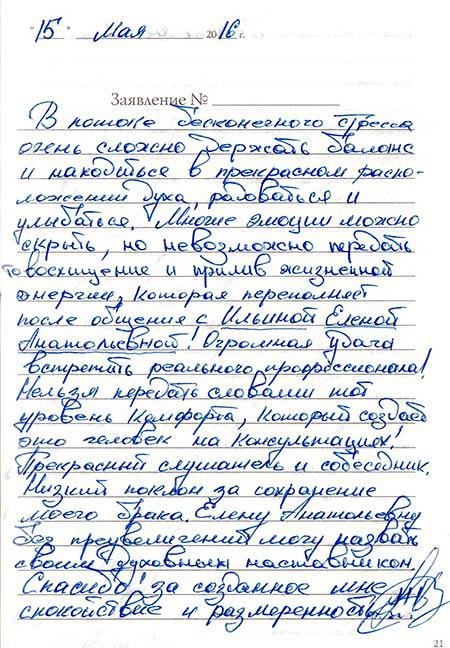 "15" Мая 2016 г.
Заявление №
В потоке бесконечного стресса
очень сложно держать баланс
и находиться в прекрасном распо-
ложении духа, радоваться и
улыбаться. Многие эмоции можно
скрыть, но невозможно передать
то восхищение и прилив жизненной
энергии, которая переполняет
после общения с Ильиной Еленой
Анатольевной! Огромная удача
встретить реального профессионала!
Нельзя передать словами тот
уровень комфорта, который создаёт
это человек на консультациях!
Прекрасный слушатель и собеседник.
Низкий поклон за сохранение
моего брака. Елену Анатольевну
без преувеличений могу назвать
своим духовным наставником.
Спасибо! за созданное мне
спокойствие и размеренность
21